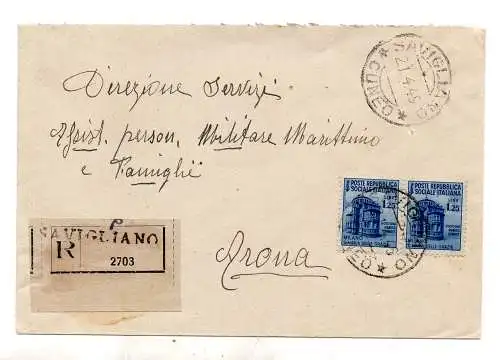 SAVIGLIANO * CUNEO *
21.4.45
Direzione Servizi
Assist. person. Militare Marittimo
e Famiglie
POSTE REPUBBLICA
SOCIALE ITALIANA
LIRE
1.25
MILANO
POSTE REPUBBLICA
SOCIALE ITALIANA
LIRE
1.25
SAVIGLIANO
R
2703
Arona